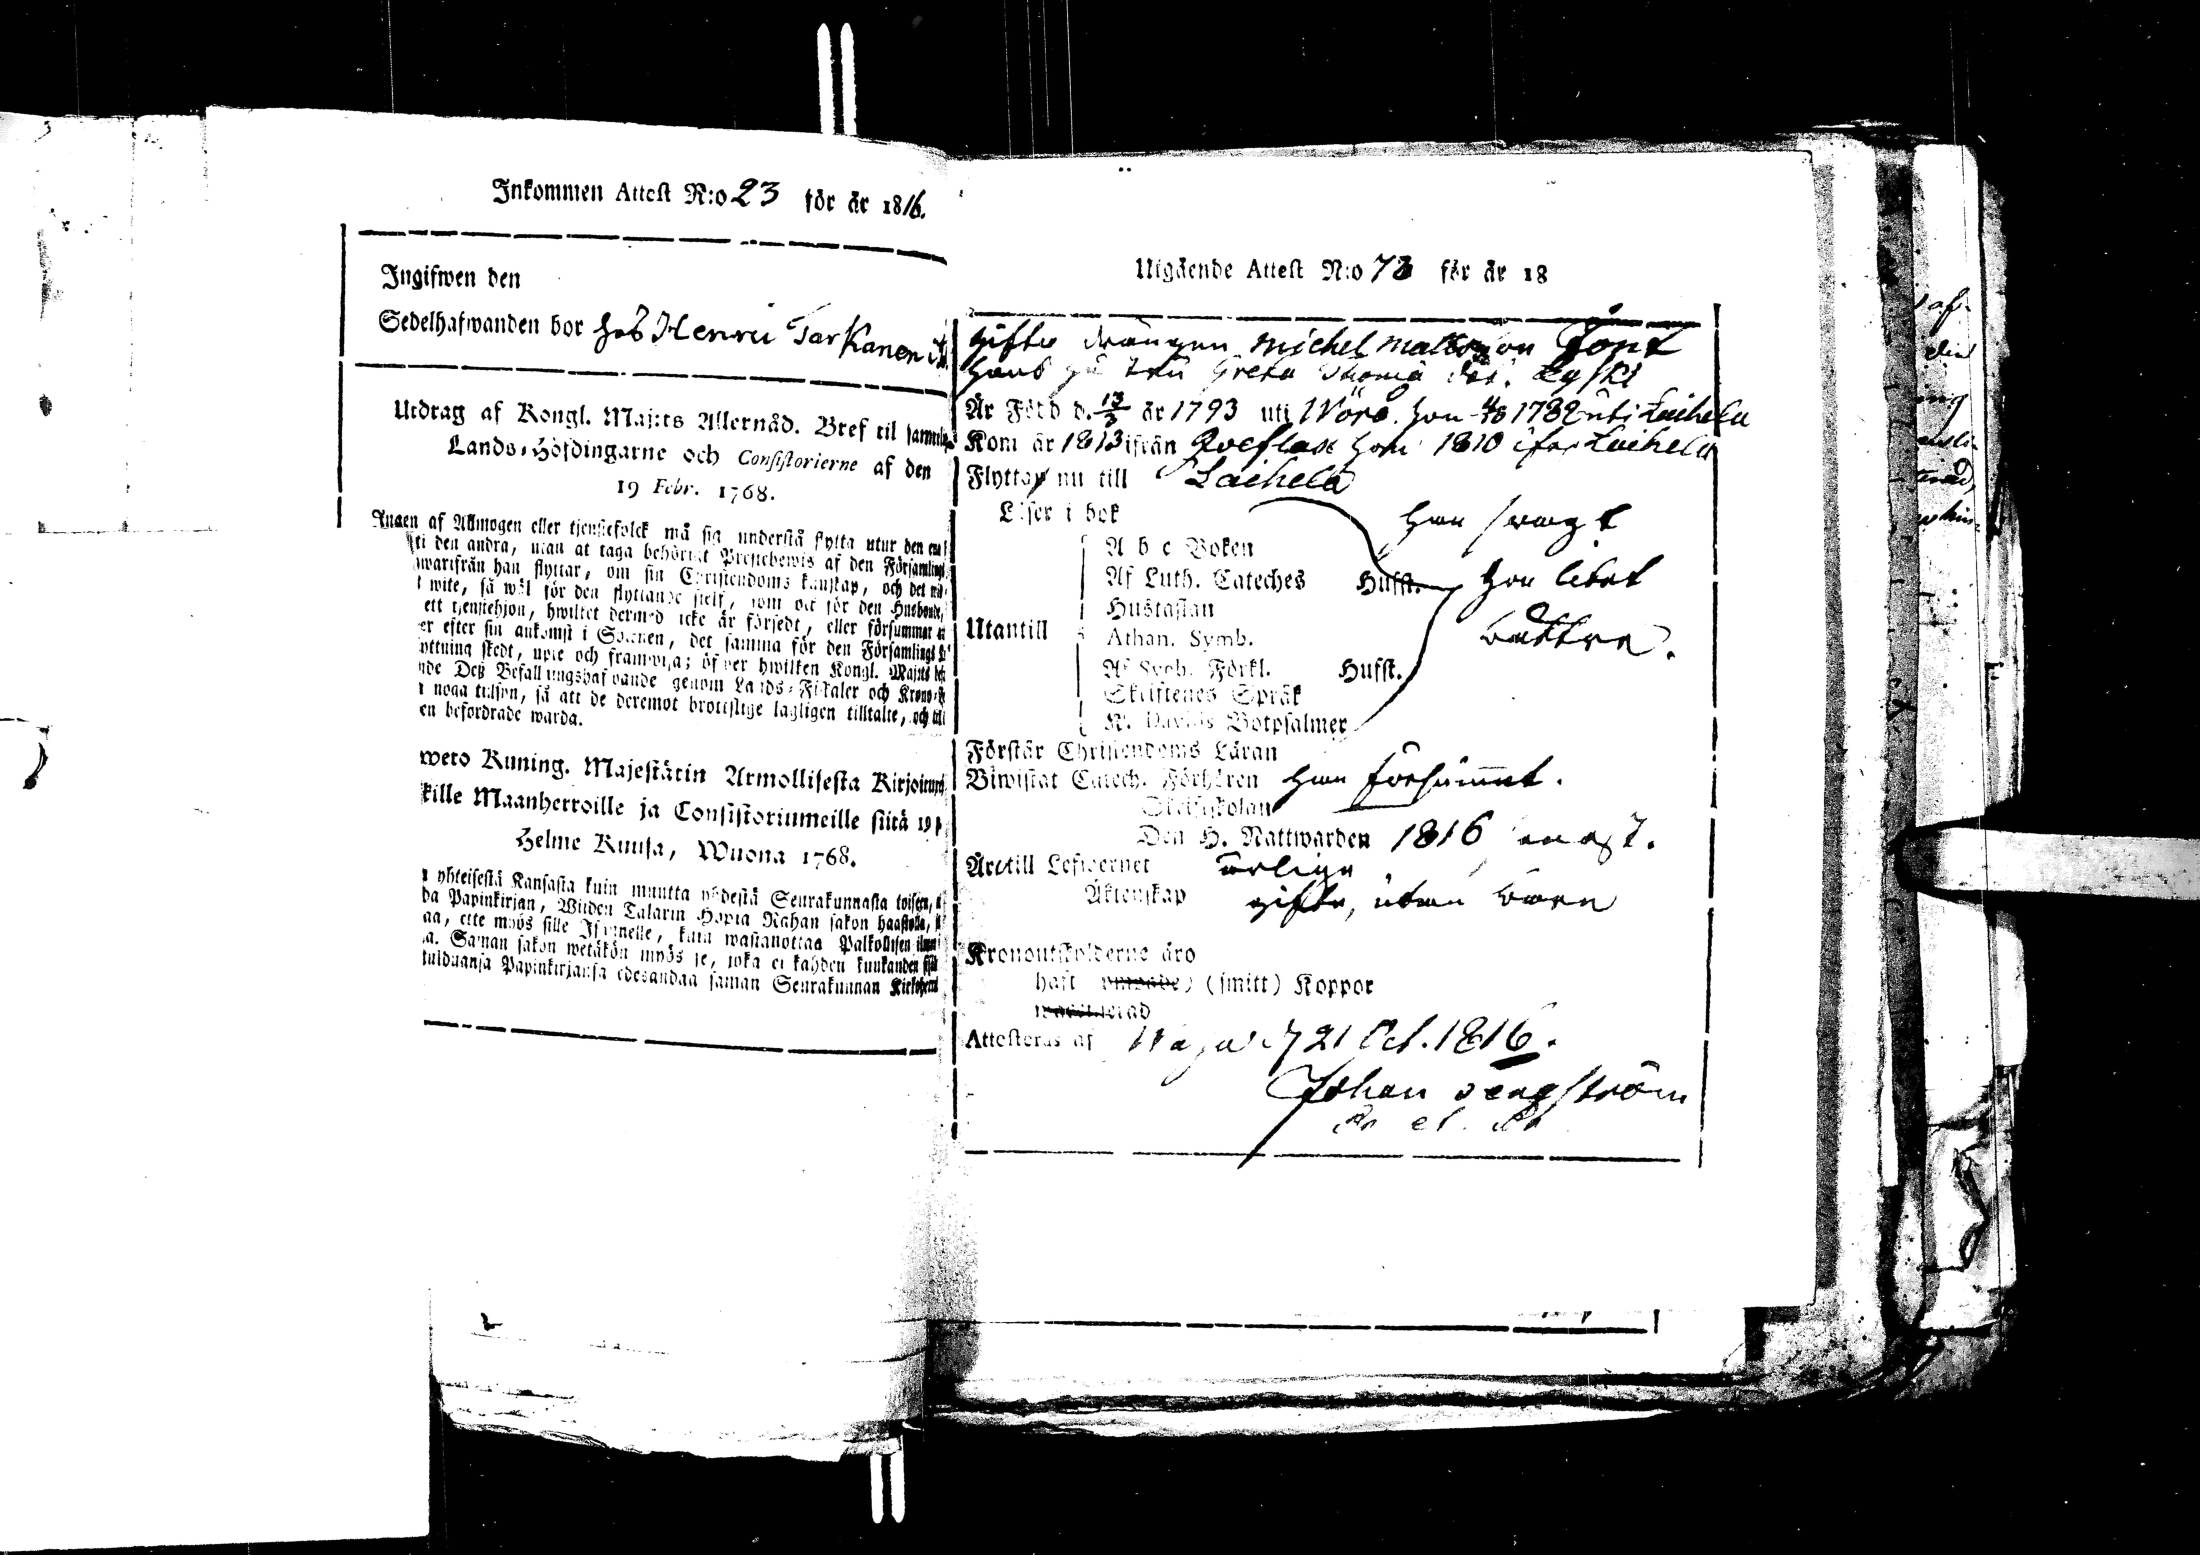 Inkommen Attest N:o 23 för år 1816.
Ingifwen den
Sedelhafwanden bor hos Henric Tarkanen
Utdrag af Kongl. Maj:ts Allernåd. Bref til samtelige
Lands-Höfdingarne och Consistorierne af den
19 Febr. 1768.
Ingen af Allmogen eller tjenstefolck må sig understå flytta utur den ena
ti den andra, utan at taga behörigt Prestebewis af den Församling
hwarifrån han flyttar, om sin Christendoms kunskap, och det wid
t wite, så wäl för den flyttande sielf, som ock för den Husbonde,
ett tjenstehjon, hwilket dermed icke är försedt, eller försummar at
er efter sin ankomst i Socknen, det samma för den Församlings
yttning skedt, upte och framwisa; öfwer hwilken Kongl. Maj:ts
nde Deß Befallningshafwande genom Lands-Fiskaler och Krono-
t noga tillsyn, så att de deremot brottslige lagligen tilltalte, och till
en befordrade warda.
wero Kuning. Majestätin Armollisesta Kirjoituxes
kille Maanherroille ja Consistoriumeille siitä 19 p.
Helme Kuusa, Wuona 1768.
yhteisestä Kansasta kuin muutta yhdestä Seurakunnasta toiseen,
da Papinkirjan, Wiiden Talarin Hopia Rahan sakon haastolla,
aa, ette myös sille Isännelle, kuin wastanottaa Palkollisen ilman
.a. Saman sakon wetäkön myös se, joka ei kahden kuukauden sisäl
tulduansa Papinkirjansa edesandaa saman Seurakunnan Kirkoherral
Utgående Attest N:o 73 för år 18
gifte drängen Michel Mattsson Tönt
hans hustru Greta Thomæ dot. Lyski
Är Född d. 13/3 år 1793 uti Wörå. hon 1789 uti Laihela
Kom år 1813 ifrån Qveflax hon 1810 ifrån Laihela
Flyttar nu till Laihela
Läser i bok han swagt
A b c Boken
Af Luth. Cateches Husst. hon litet
Hustaflan
Utantill Athan. Symb. bättre.
Af Sveb. Förkl. Husst.
Skriftenes Språk
K. Davids Botpsalmer
Förstår Christendoms Läran
Biwistat Catech. Förhören han försummat.
Skriftskolan
Den H. Nattwarden 1816
Är till Lefwernet ärlige
Äktenskap gifte, utan barn
Kronoutskylderne äro
haft (smitt) Koppor
vaccinerad
Attesteras af Wasa d 21 Oct. 1816.
Johan Bergström